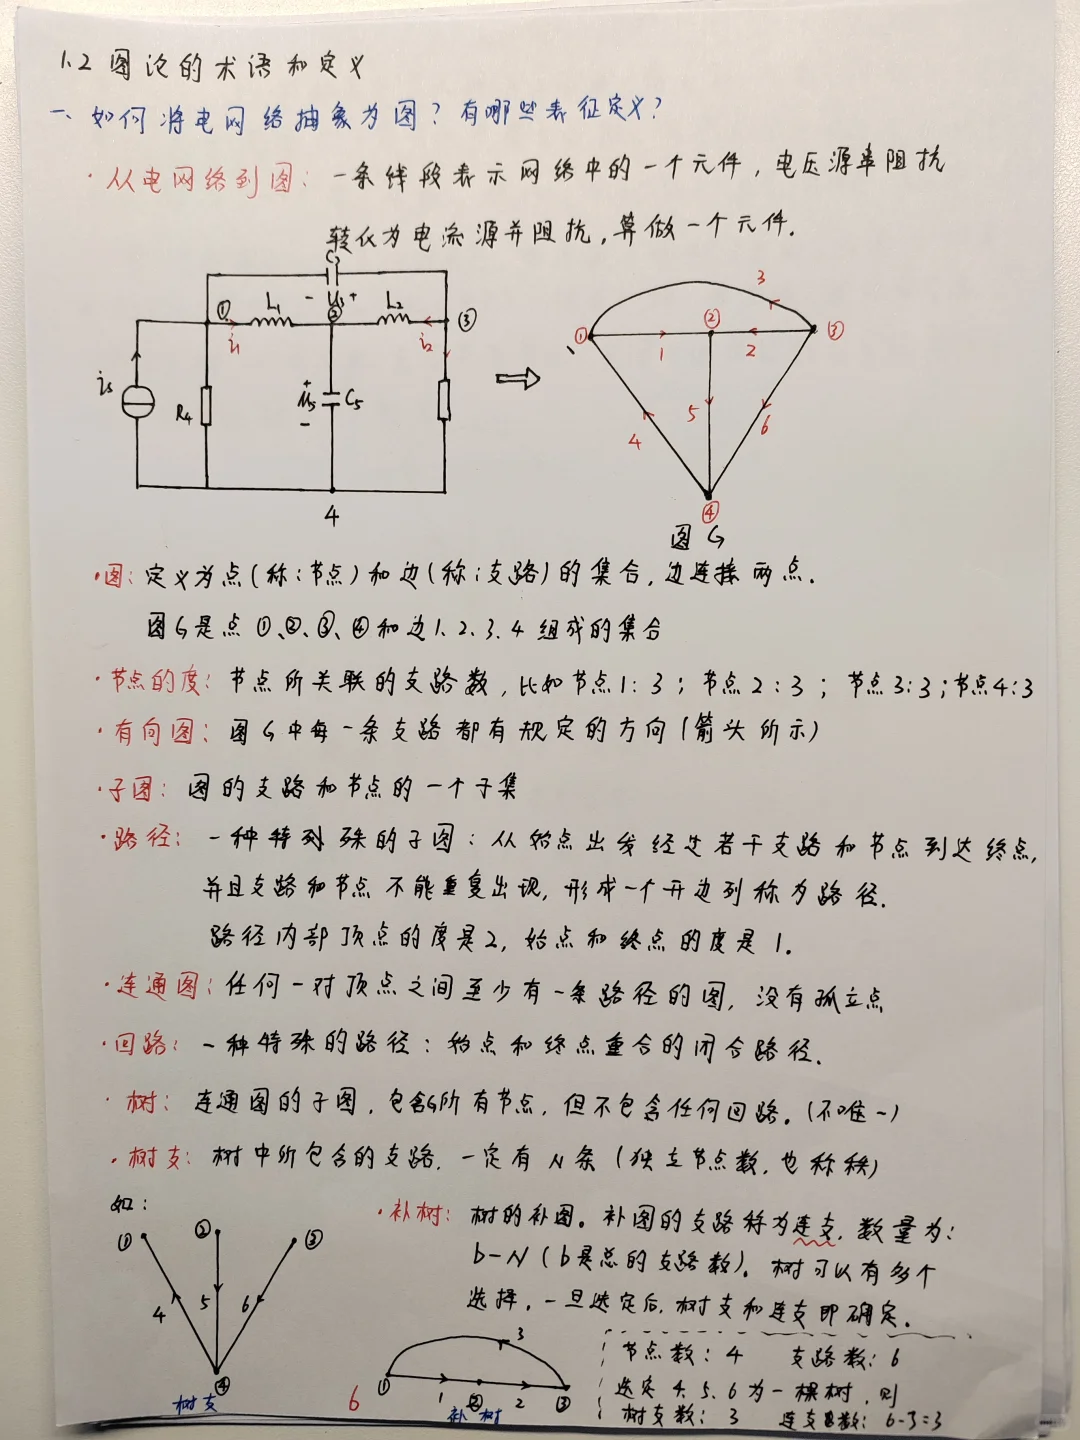 1.2 图论的术语和定义
一、如何将电网络抽象为图？有哪些表征定义？
·从电网络到图：一条线段表示网络中的一个元件，电压源串阻抗
转化为电流源并阻抗，算做一个元件.
C3
① L1 - U3 + ② L2 ③
i1 i2
is R4 + U5 - C5
4
3
① ② ③
1 2
5
4 6
④
图G
·图：定义为点(称:节点)和边(称:支路)的集合，边连接两点.
图G是点①、②、③、④和边1.2.3.4组成的集合
·节点的度：节点所关联的支路数，比如节点1:3；节点2:3；节点3:3；节点4:3
·有向图：图G中每一条支路都有规定的方向(箭头所示)
·子图：图的支路和节点的一个子集
·路径：一种特别殊的子图：从始点出发经过若干支路和节点到达终点，
并且支路和节点不能重复出现，形成一个开边列称为路径.
路径内部顶点的度是2，始点和终点的度是1.
·连通图：任何一对顶点之间至少有一条路径的图，没有孤立点
·回路：一种特殊的路径：始点和终点重合的闭合路径.
·树：连通图的子图，包含G所有节点，但不包含任何回路.(不唯一)
·树支：树中所包含的支路，一定有N条(独立节点数，也称秩)
如：
① ② ③
4 5 6
④
树支
·补树：树的补图。补图的支路称为连支，数量为：
b-N(b是总的支路数)。树可以有多个
选择，一旦选定后，树支和连支即确定。
3
① 1 ② 2 ③
补树
节点数：4 支路数：6
选定4.5.6为一棵树，则
树支数：3 连支数：6-3=3
6